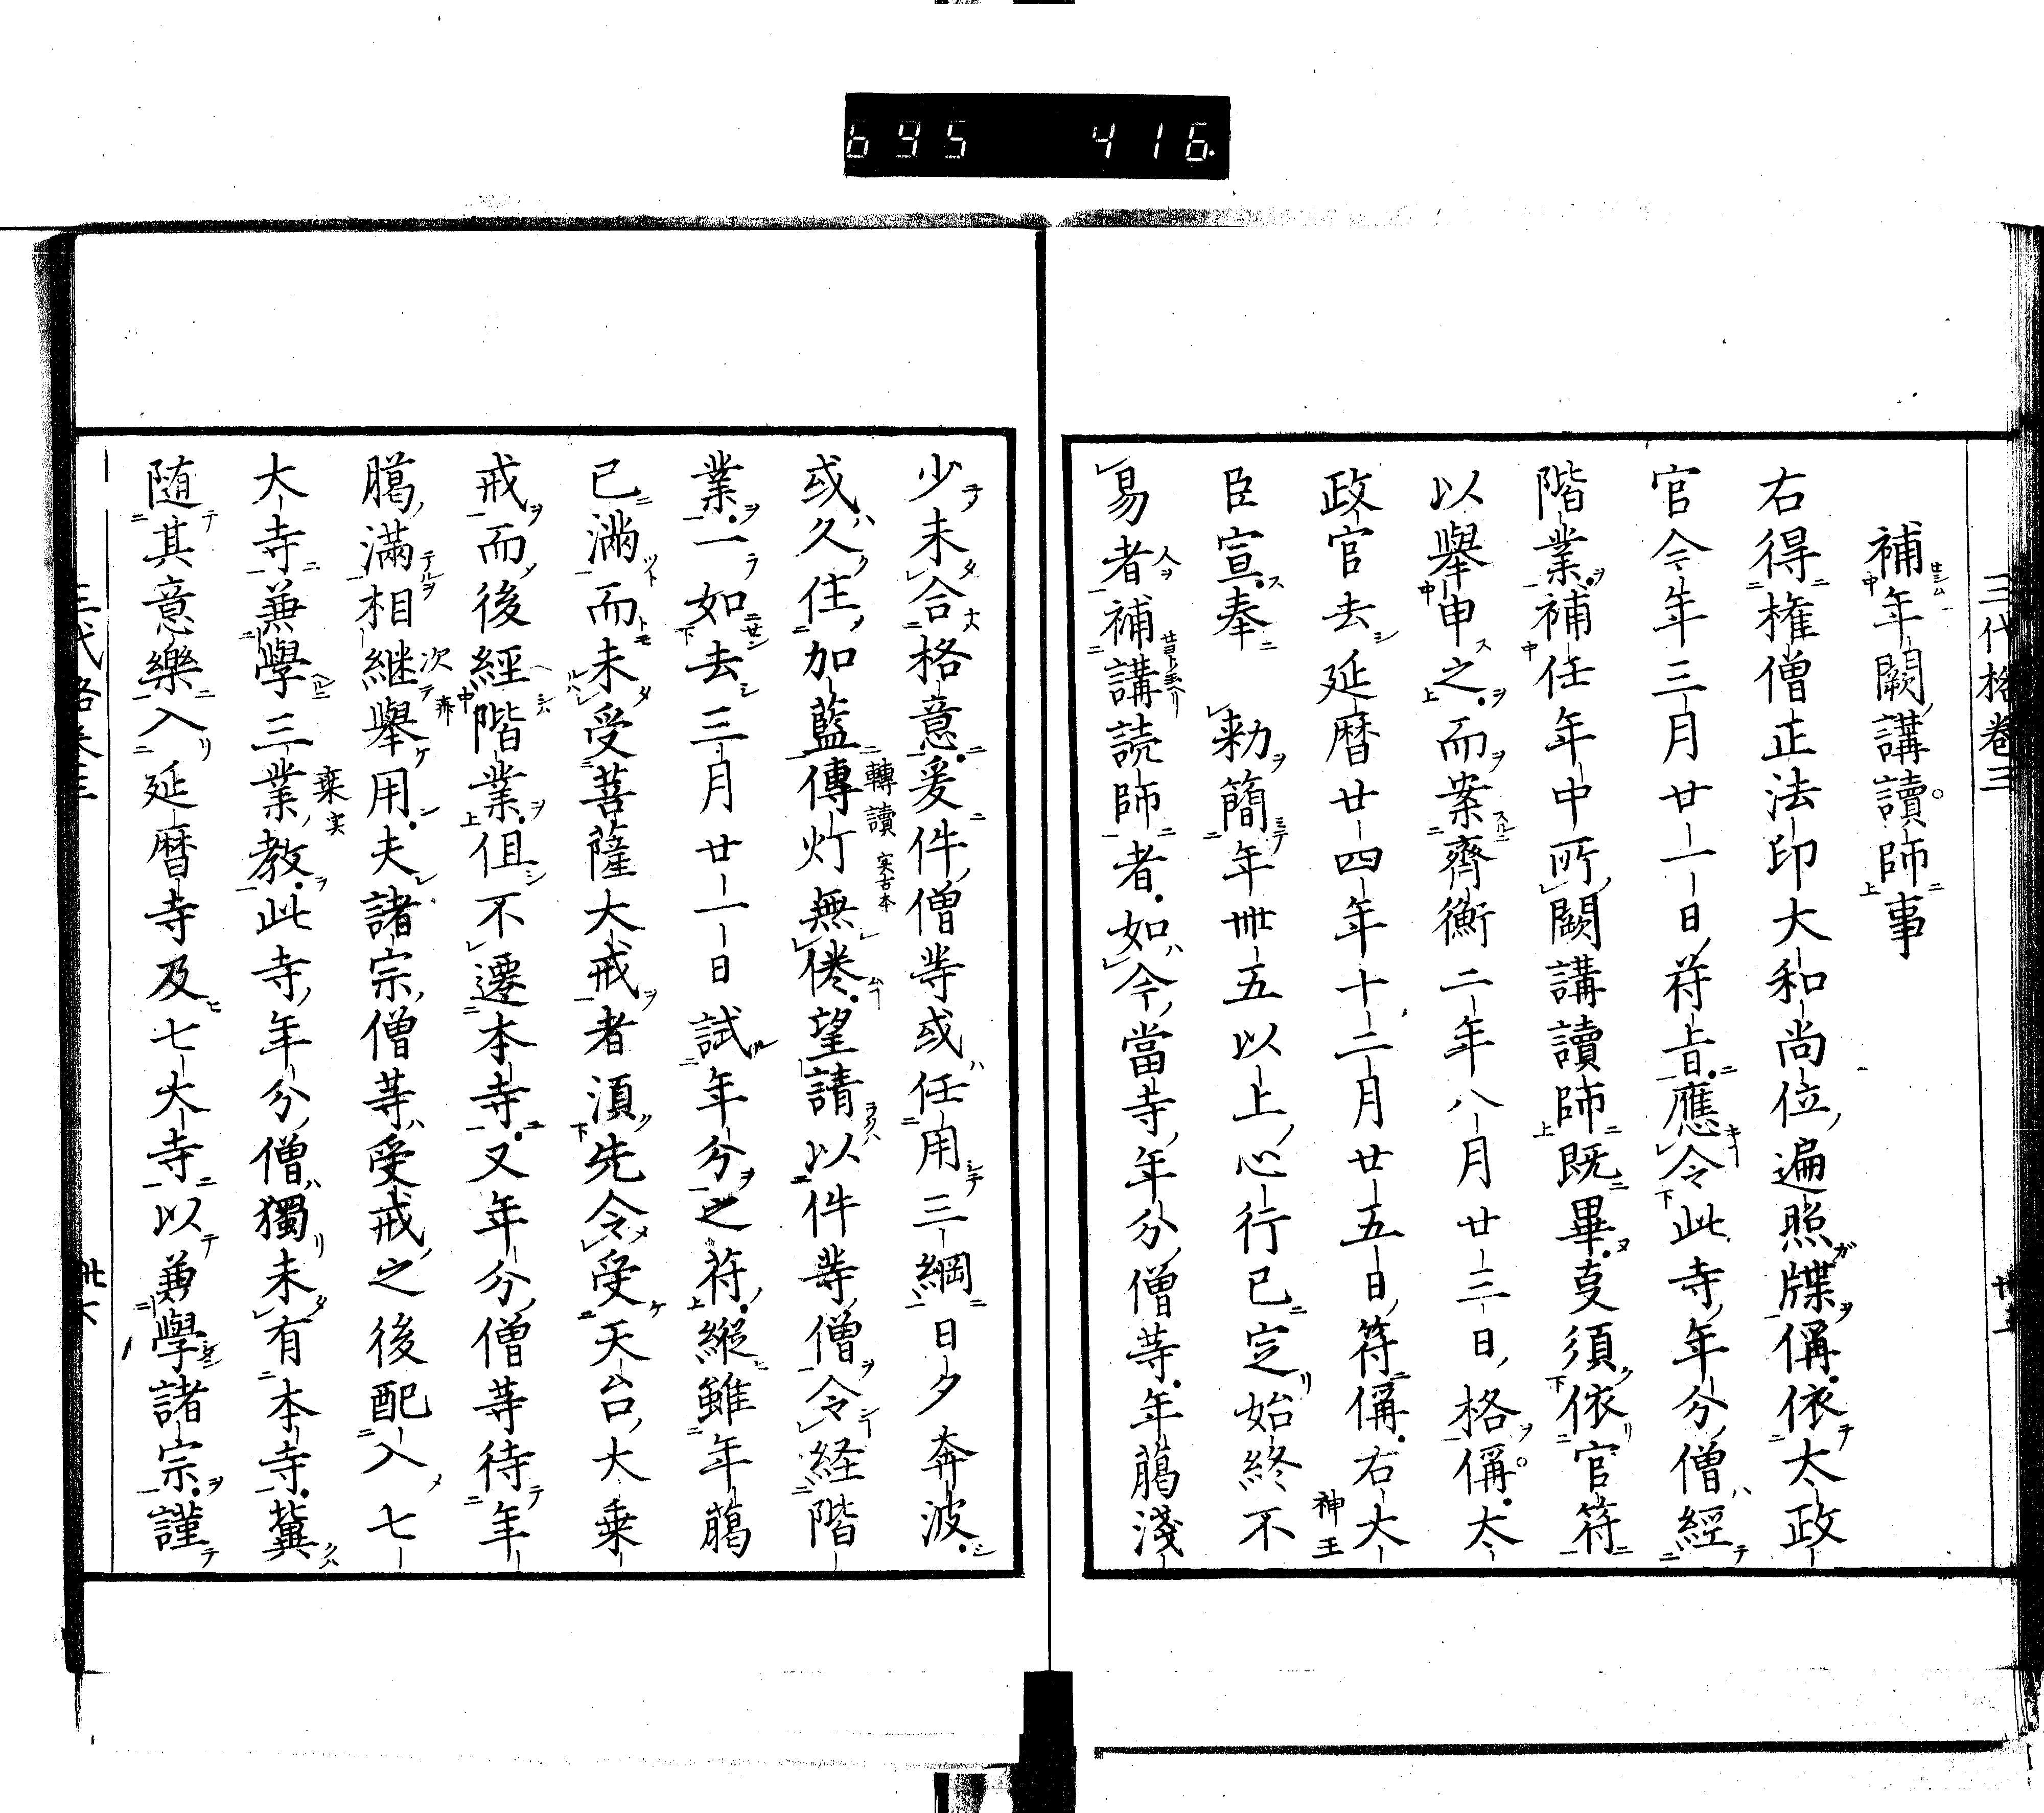 695 416.
三代格卷三
補年闕講讀師事
右得權僧正法印大和尚位遍照牒偁依太政
官今年三月廿一日符旨應令此寺年分僧經
階業補任年中所闕講讀師既畢叓須依官符
以舉申之而案齊衡二年八月廿三日格偁太
政官去延曆廿四年十二月廿五日符偁右大
神王
臣宣奉 勅簡年卌五以上心行已定始終不
易者補講読師者如今當寺年分僧等年﨟淺
少未合格意爰件僧等或任用三綱日夕奔波
或久住加藍傳灯無倦望請以件等僧令経階
轉讀 実古本
業一如去三月廿一日試年分之符縱雖年﨟
已満而未受菩薩大戒者須先令受天台大乗
戒而後經階業但不遷本寺又年分僧等待年
臈滿相継舉用夫諸宗僧等受戒之後配入七
次
大寺兼學三業教此寺年分僧獨未有本寺冀
乗実
随其意樂入延曆寺及七大寺以兼學諸宗謹
三代格卷三
卅六